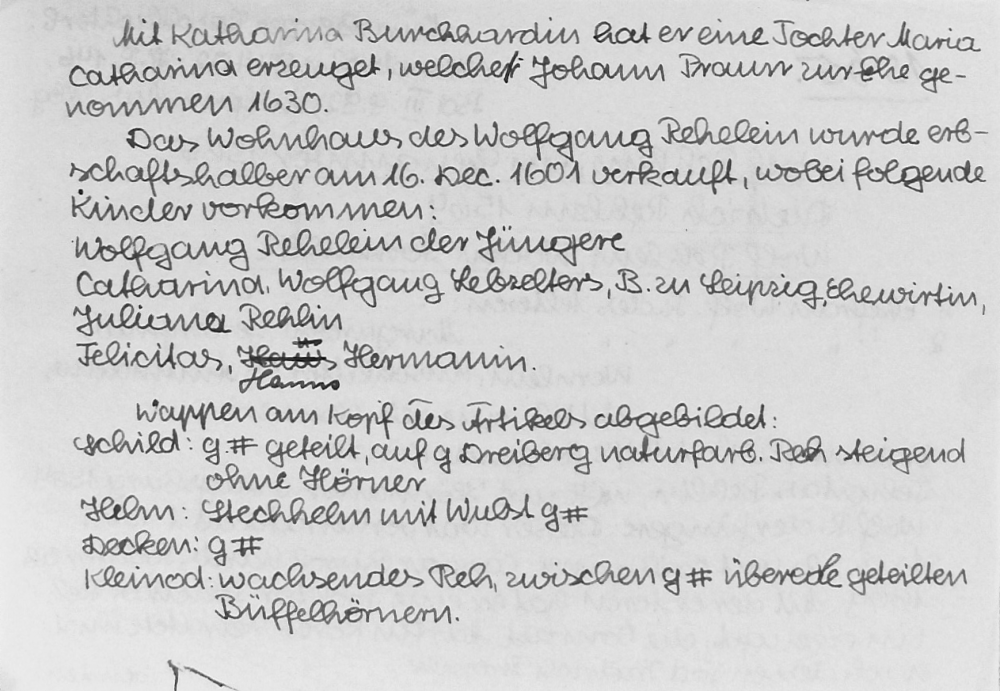 Mit Katharina Burchhardin hat er eine Tochter Maria
Catharina erzeuget, welche Johann Praun zur Ehe ge-
nommen 1630.
Das Wohnhaus des Wolfgang Rehelein wurde erb-
schaftshalber am 16. Dec. 1601 verkauft, wobei folgende
Kinder vorkommen:
Wolfgang Rehelein der Jüngere
Catharina, Wolfgang Lebzelters, B. zu Leipzig, Ehewirtin,
Juliana Rehlin
Felicitas, Hermanin.
Hanns
Wappen am Kopf des Artikels abgebildet:
Schild: g # geteilt, auf g Dreiberg naturfarb. Reh steigend
ohne Hörner
Helm: Stechhelm mit Wulst g #
Decken: g #
Kleinod: wachsendes Reh, zwischen g # überecke geteilten
Büffelhörnern.